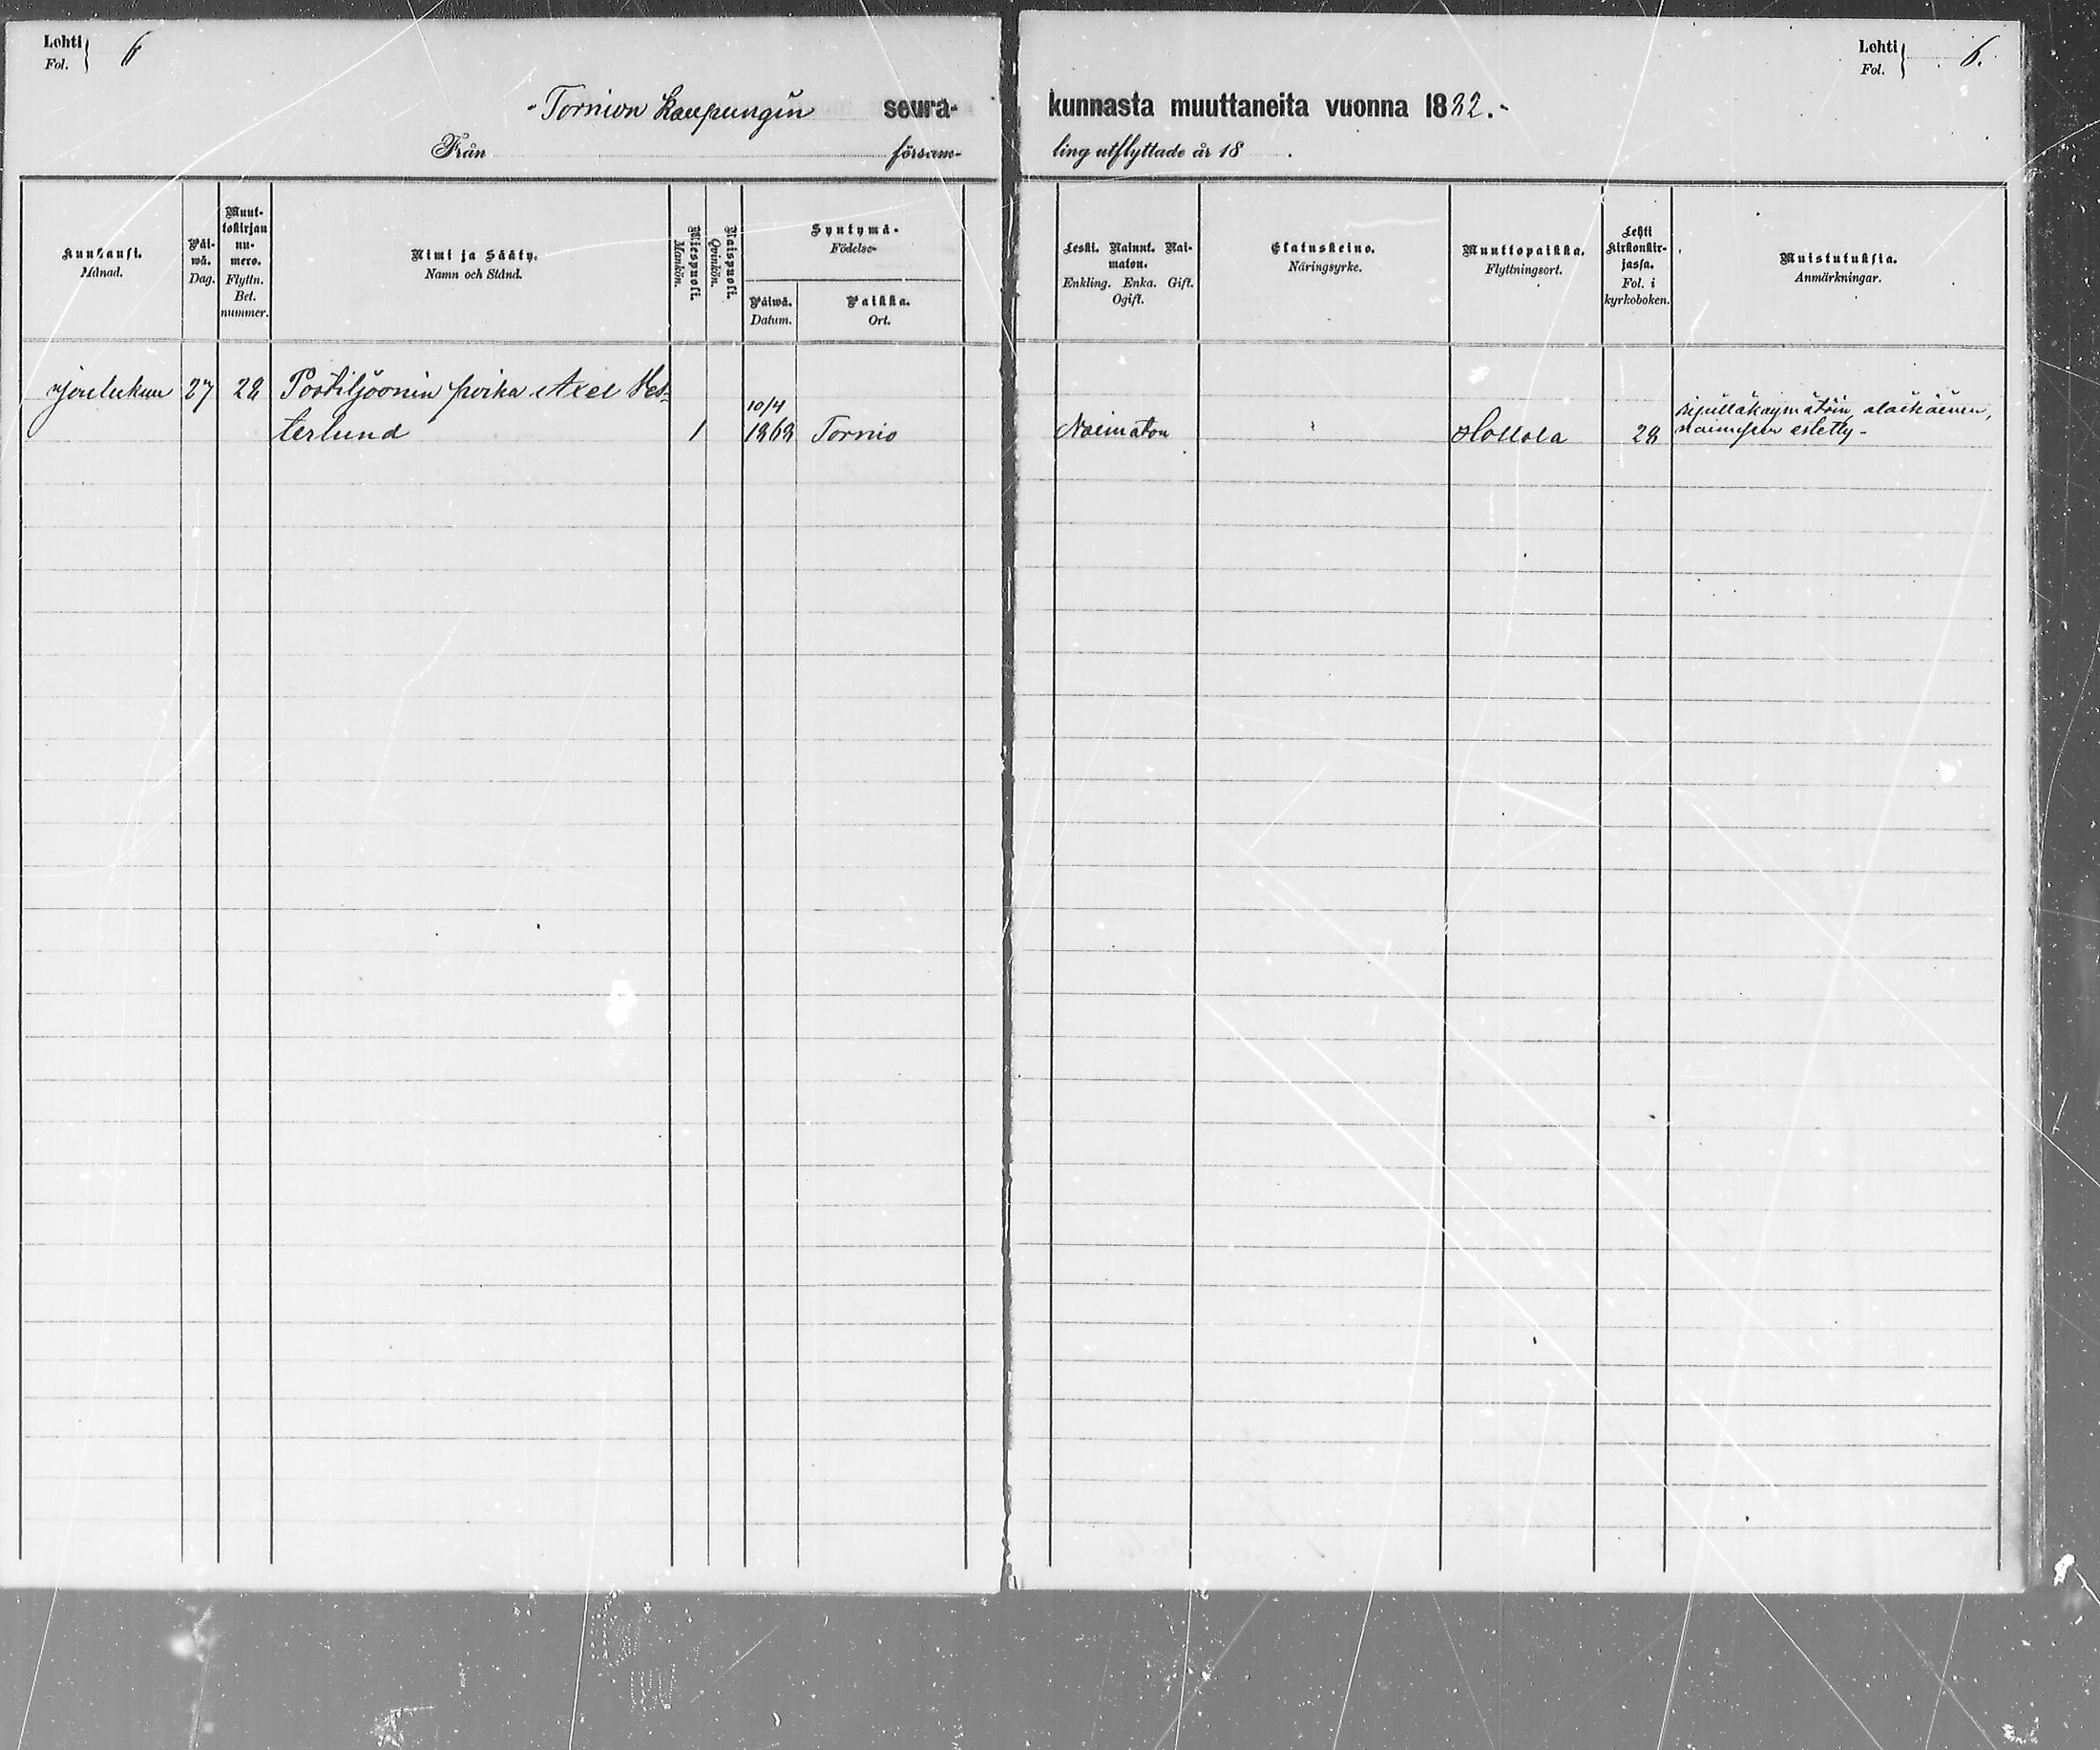 Lehti
Fol. } 6
Lehti
Fol. } 6.
Tornion Kaupungin seurakunnasta muuttaneita vuonna 1882.
Från församling utflyttade år 18 .
Kuukausi.
Månad.
Päi-
wä.
Dag.
Muut-
tokirjan
nu-
mero.
Flyttn.
Bet.
nummer.
Nimi ja Sääty.
Namn och Stånd.
Miespuoli.
Mankön.
Naispuoli.
Qvinkön.
Syntymä-
Födelse-
Päiwä.
Datum.
Paikka.
Ort.
Leski. Nainut. Nai-
maton.
Enkling. Enka. Gift.
Ogift.
Elatuskeino.
Näringsyrke.
Muuttopaikka.
Flyttningsort.
Lehti
kirkonkir-
jassa.
Fol. i
kyrkoboken.
Muistutuksia.
Anmärkningar.
Joulukuu 27 28 Postiljoonin poika Axel Ves-
terlund 1 10/4
1868 Tornio Naimaton Hollola 28
ripilläkäymätöin, alaikäinen,
estetty-